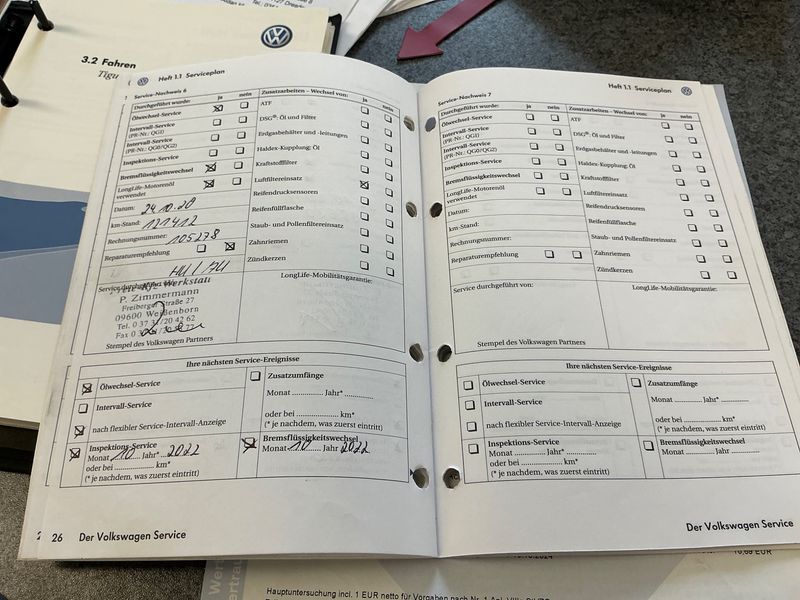 3.2 Fahren
Heft 1.1 Serviceplan
Service-Nachweis 6
Durchgeführt wurde: ja nein
Ölwechsel-Service
Intervall-Service
(PR-Nr.: QG1)
Intervall-Service
(PR-Nr.: QG0/QG2)
Inspektions-Service
Bremsflüssigkeitswechsel
LongLife-Motorenöl
verwendet
Datum: 24.10.20
km-Stand: 121412
Rechnungsnummer: 105278
Reparaturempfehlung
HU / AU
Zusatzarbeiten – Wechsel von: ja nein
ATF
DSG®: Öl und Filter
Erdgasbehälter und -leitungen
Haldex-Kupplung: Öl
Kraftstofffilter
Luftfiltereinsatz
Reifendrucksensoren
Reifenfüllflasche
Staub- und Pollenfiltereinsatz
Zahnriemen
Zündkerzen
Service durchgeführt von:
Werkstatt
P. Zimmermann
Freiberger Straße 27
09600 Weißenborn
Stempel des Volkswagen Partners
LongLife-Mobilitätsgarantie:
Ihre nächsten Service-Ereignisse
Ölwechsel-Service
Intervall-Service
nach flexibler Service-Intervall-Anzeige
Inspektions-Service
Monat 10 Jahr* 2022
oder bei km*
(* je nachdem, was zuerst eintritt)
Zusatzumfänge
Monat Jahr*
oder bei km*
(* je nachdem, was zuerst eintritt)
Bremsflüssigkeitswechsel
Monat 10 Jahr 2022
26 Der Volkswagen Service
Heft 1.1 Serviceplan
Service-Nachweis 7
Durchgeführt wurde: ja nein
Ölwechsel-Service
Intervall-Service
(PR-Nr.: QG1)
Intervall-Service
(PR-Nr.: QG0/QG2)
Inspektions-Service
Bremsflüssigkeitswechsel
LongLife-Motorenöl
verwendet
Datum:
km-Stand:
Rechnungsnummer:
Reparaturempfehlung
Zusatzarbeiten – Wechsel von: ja nein
ATF
DSG®: Öl und Filter
Erdgasbehälter und -leitungen
Haldex-Kupplung: Öl
Kraftstofffilter
Luftfiltereinsatz
Reifendrucksensoren
Reifenfüllflasche
Staub- und Pollenfiltereinsatz
Zahnriemen
Zündkerzen
Service durchgeführt von:
Stempel des Volkswagen Partners
LongLife-Mobilitätsgarantie:
Ihre nächsten Service-Ereignisse
Ölwechsel-Service
Intervall-Service
nach flexibler Service-Intervall-Anzeige
Inspektions-Service
Monat Jahr*
oder bei km*
(* je nachdem, was zuerst eintritt)
Zusatzumfänge
Monat Jahr*
oder bei km*
(* je nachdem, was zuerst eintritt)
Bremsflüssigkeitswechsel
Monat Jahr
Der Volkswagen Service
Hauptuntersuchung incl. 1 EUR netto für Vorgaben nach Nr. 1